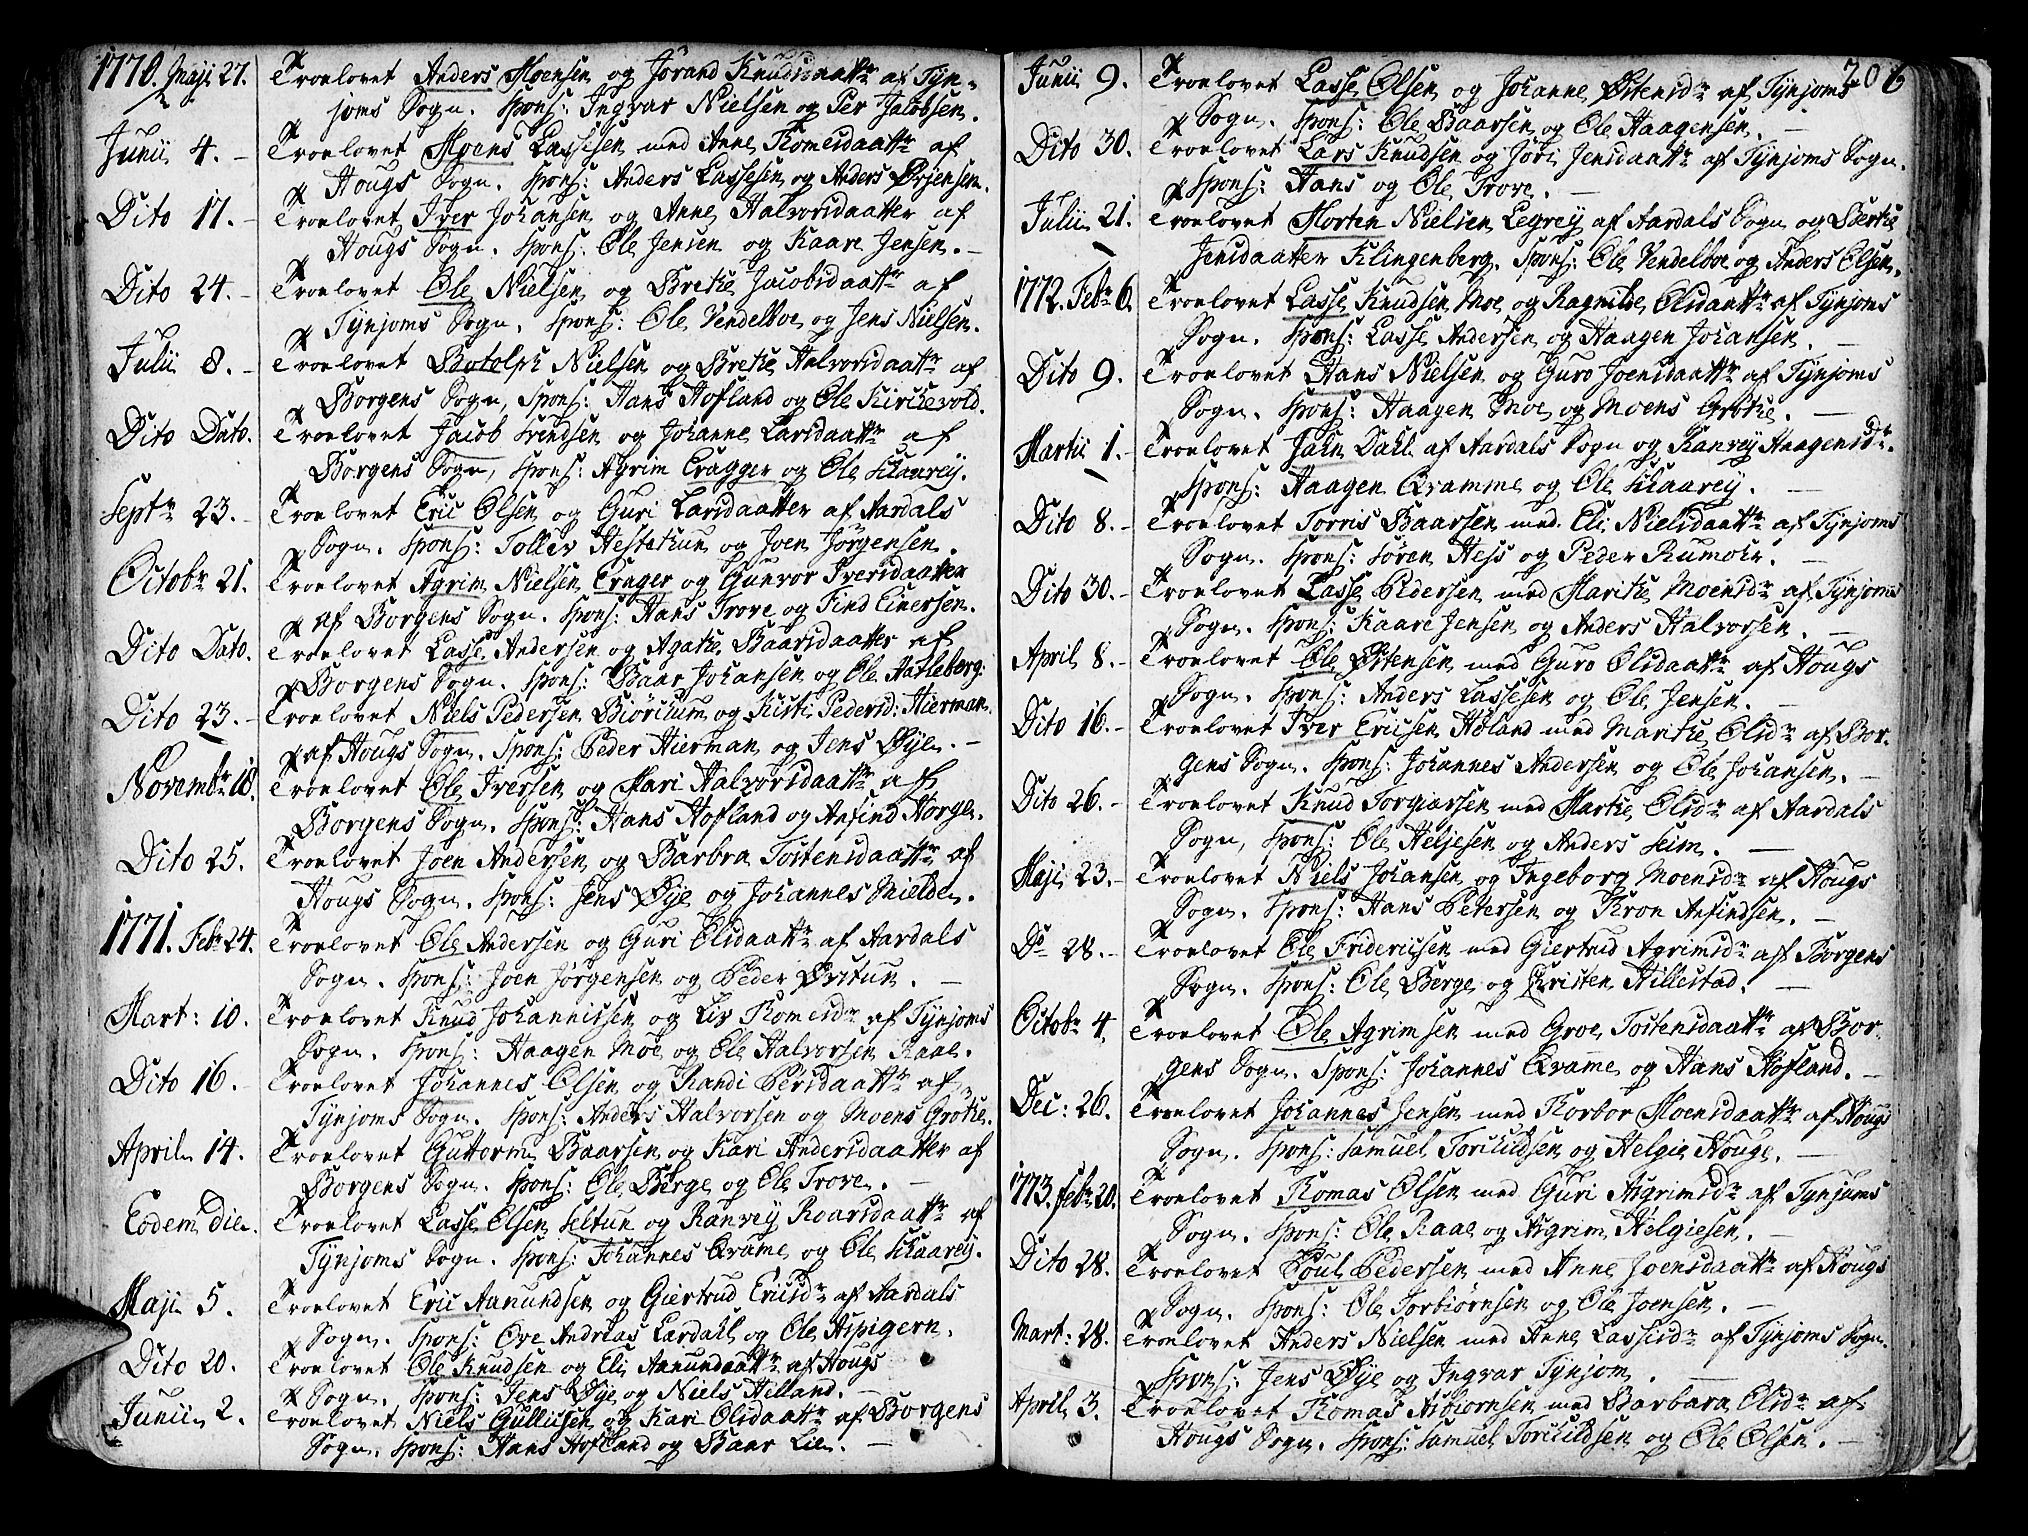 1770. Maji 27. Troelovet Anders Moensen og Jørand Knudsdaattr af Tyn-
joms Sogn. Spons: Ingvar Nielsen og Per Jacobsen.
Junii 4. Troelovet Moens Lassesen med Anne Tomesdaattr af
Hougs Sogn. Spons: Anders Lassesen og Anders Ørjensen.
Dito 17. Troelovet Iver Johansen og Anne Halvorsdaatter af
Hougs Sogn. Spons: Ole Jensen og Kaare Jensen.
Dito 24. Troelovet Ole Nielsen og Brethe Jacobsdaattr af
Tynjoms Sogn. Spons: Ole Vendelboe og Jens Nielsen.
Julii 8. Troelovet Botolph Nielsen og Brethe Halvorsdaattr af
Borgens Sogn, Spons: Hans Hofland og Ole Kirchevold.
Dito Dato. Troelovet Jacob Svendsen og Johanne Larsdaattr af
Borgens Sogn, Spons: Agrim Eragger og Ole Skaarey.
Septr 23. Troelovet Eric Olsen og Guri Larsdaatter af Aardals
Sogn. Spons: Tollev Hestethun og Joen Jørgensen.
Octobr 21. Troelovet Agrim Nielsen Erager og Gunvor Iversdaatter
af Borgens Sogn. Spons: Hans Trove og Find Einersen.
Dito Dato. Troelovet Lasse Andersen og Agathe Baarsdaatter af
Borgens Sogn. Spons: Baar Johansen og Ole Hatleberg.
Dito 23. Troelovet Niels Pedersen Biørcium og Kisti Pedersd: Hierman
af Hougs Sogn. Spons: Peder Hierman og Jens Øye.
Novembr 18. Troelovet Ole Iversen og Mari Halvorsdaattr af
Borgens Sogn. Spons: Hans Hofland og Anfind Horge.
Dito 25. Troelovet Joen Andersen og Barbra Tostensdaattr af
Hougs Sogn. Spons: Jens Øye og Johannes Mielde.
1771. Febr 24. Troelovet Ole Andersen og Guri Olsdaattr af Aardals
Sogn. Spons: Joen Jørgensen og Peder Øretun.
Mart: 10. Troelovet Knud Johannissen og Liv Tomesdr af Tynjoms
Sogn. Spons: Haagen Moe og Ole Halvorsen Raae.
Dito 16. Troelovet Johannes Olsen og Randi Persdaattr af
Tynjoms Sogn. Spons: Anders Halvorsen og Moens Grothe.
April 14. Troelovet Guttorm Baarsen og Kari Andersdaatter af
Borgens Sogn. Spons: Ole Berge og Ole Trove.
Eodem die. Troelovet Lasse Olsen Seltun og Ranvey Roarsdaattr af
Tynjoms Sogn. Spons: Johannes Qvame og Ole Skaarey.
Maji 5. Troelovet Eric Aamundsen og Giertrud Ericsdr af Aardals
Sogn. Spons: Ove Andreas Lærdahl og Ole Aspigern.
Dito 20. Troelovet Ole Knudsen og Eli Aamundaattr af Hougs
Sogn. Spons: Jens Øye og Niels Helland.
Junii 2. Troelovet Niels Gullicsen og Kari Olsdaattr af Borgens
Sogn. Spons: Hans Hofland og Baar Lie.
206
Junii 9. Troelovet Lasse Olsen og Johanne Østensdr af Tynjoms
Sogn. Spons: Ole Baarsen og Ole Haagensen.
Dito 30. Troelovet Lars Knudsen og Jøri Jensdaattr af Tynjoms Sogn.
Spons: Hans og Ole Trove.
Julii 21. Troelovet Morten Nielsen Legrey af Aardals Sogn og Berthe
Jensdaatter Klingenberg. Spons: Ole Vendelboe og Anders Olsen.
1772. Febr 6. Troelovet Lasse Knudsen Moe og Ragnilde Olsdaattr af Tynjoms
Sogn. Spons: Lasse Andersen og Haagen Johansen.
Dito 9. Troelovet Hans Nielsen og Guro Joensdaattr af Tynjoms
Sogn. Spons: Haagen Moe og Moens Grothe.
Martii 1. Troelovet Jahn Dahl af Aardals Sogn og Ranvey Haagensdr.
Spons: Haagen Qvamme og Ole Skaarey.
Dito 8. Troelovet Torris Baarsen med Eli Nielsdaattr af Tynjoms
Sogn. Spons: Søren Hess og Peder Rumohr.
Dito 30. Troelovet Lasse Pedersen med Marithe Moensdr af Tynjoms
Sogn. Spons: Kaare Jensen og Anders Halvorsen.
April 8. Troelovet Ole Østensen med Guro Olsdaattr af Hougs
Sogn. Spons: Anders Lassesen og Ole Jensen.
Dito 16. Troelovet Iver Ericsen Høland med Marithe Olsdr af Bor-
gens Sogn. Spons: Johannes Andersen og Ole Johansen.
Dito 26. Troelovet Knud Torgiersen med Marthe Olsdr af Aardals
Sogn, Spons: Ole Heljesen og Anders Seim.
Maji 23. Troelovet Niels Johansen og Ingeborg Moensdr af Hougs
Sogn. Spons: Hans Petersen og Tron Anfindsen.
Do 28. Troelovet Ole Fridericsen med Giertrud Agrimsdr af Borgens
Sogn. Spons: Ole Berge og Cristen Hillestad.
Octobr 4. Troelovet Ole Agrimsen med Groe Tostensdaattr af Bor-
gens Sogn. Spons: Johannes Qvame og Hans Hofland.
Dec: 26. Troelovet Johannes Jensen med Torbor Moensdaattr af Hougs
Sogn. Spons: Samuel Torchildsen og Helgie Houge.
1773. Febr 20. Troelovet Tomas Olsen med Guri Agrimsdr af Tynjoms
Sogn. Spons: Ole Raae og Agrim Helgiesen.
Dito 28. Troelovet Poul Pedersen med Anne Joensdaattr af Hougs
Sogn. Spons: Ole Torbiørnsen og Ole Joensen.
Mart: 28. Troelovet Anders Nielsen med Anne Lassesdr af Tynjoms Sogn.
Spons: Jens Øye og Ingvar Tynjom.
April 3. Troelovet Tomas Asbiørnsen med Barbara Olsdr af
Hougs Sogn. Spons: Samuel Torchildsen og Ole Olsen.